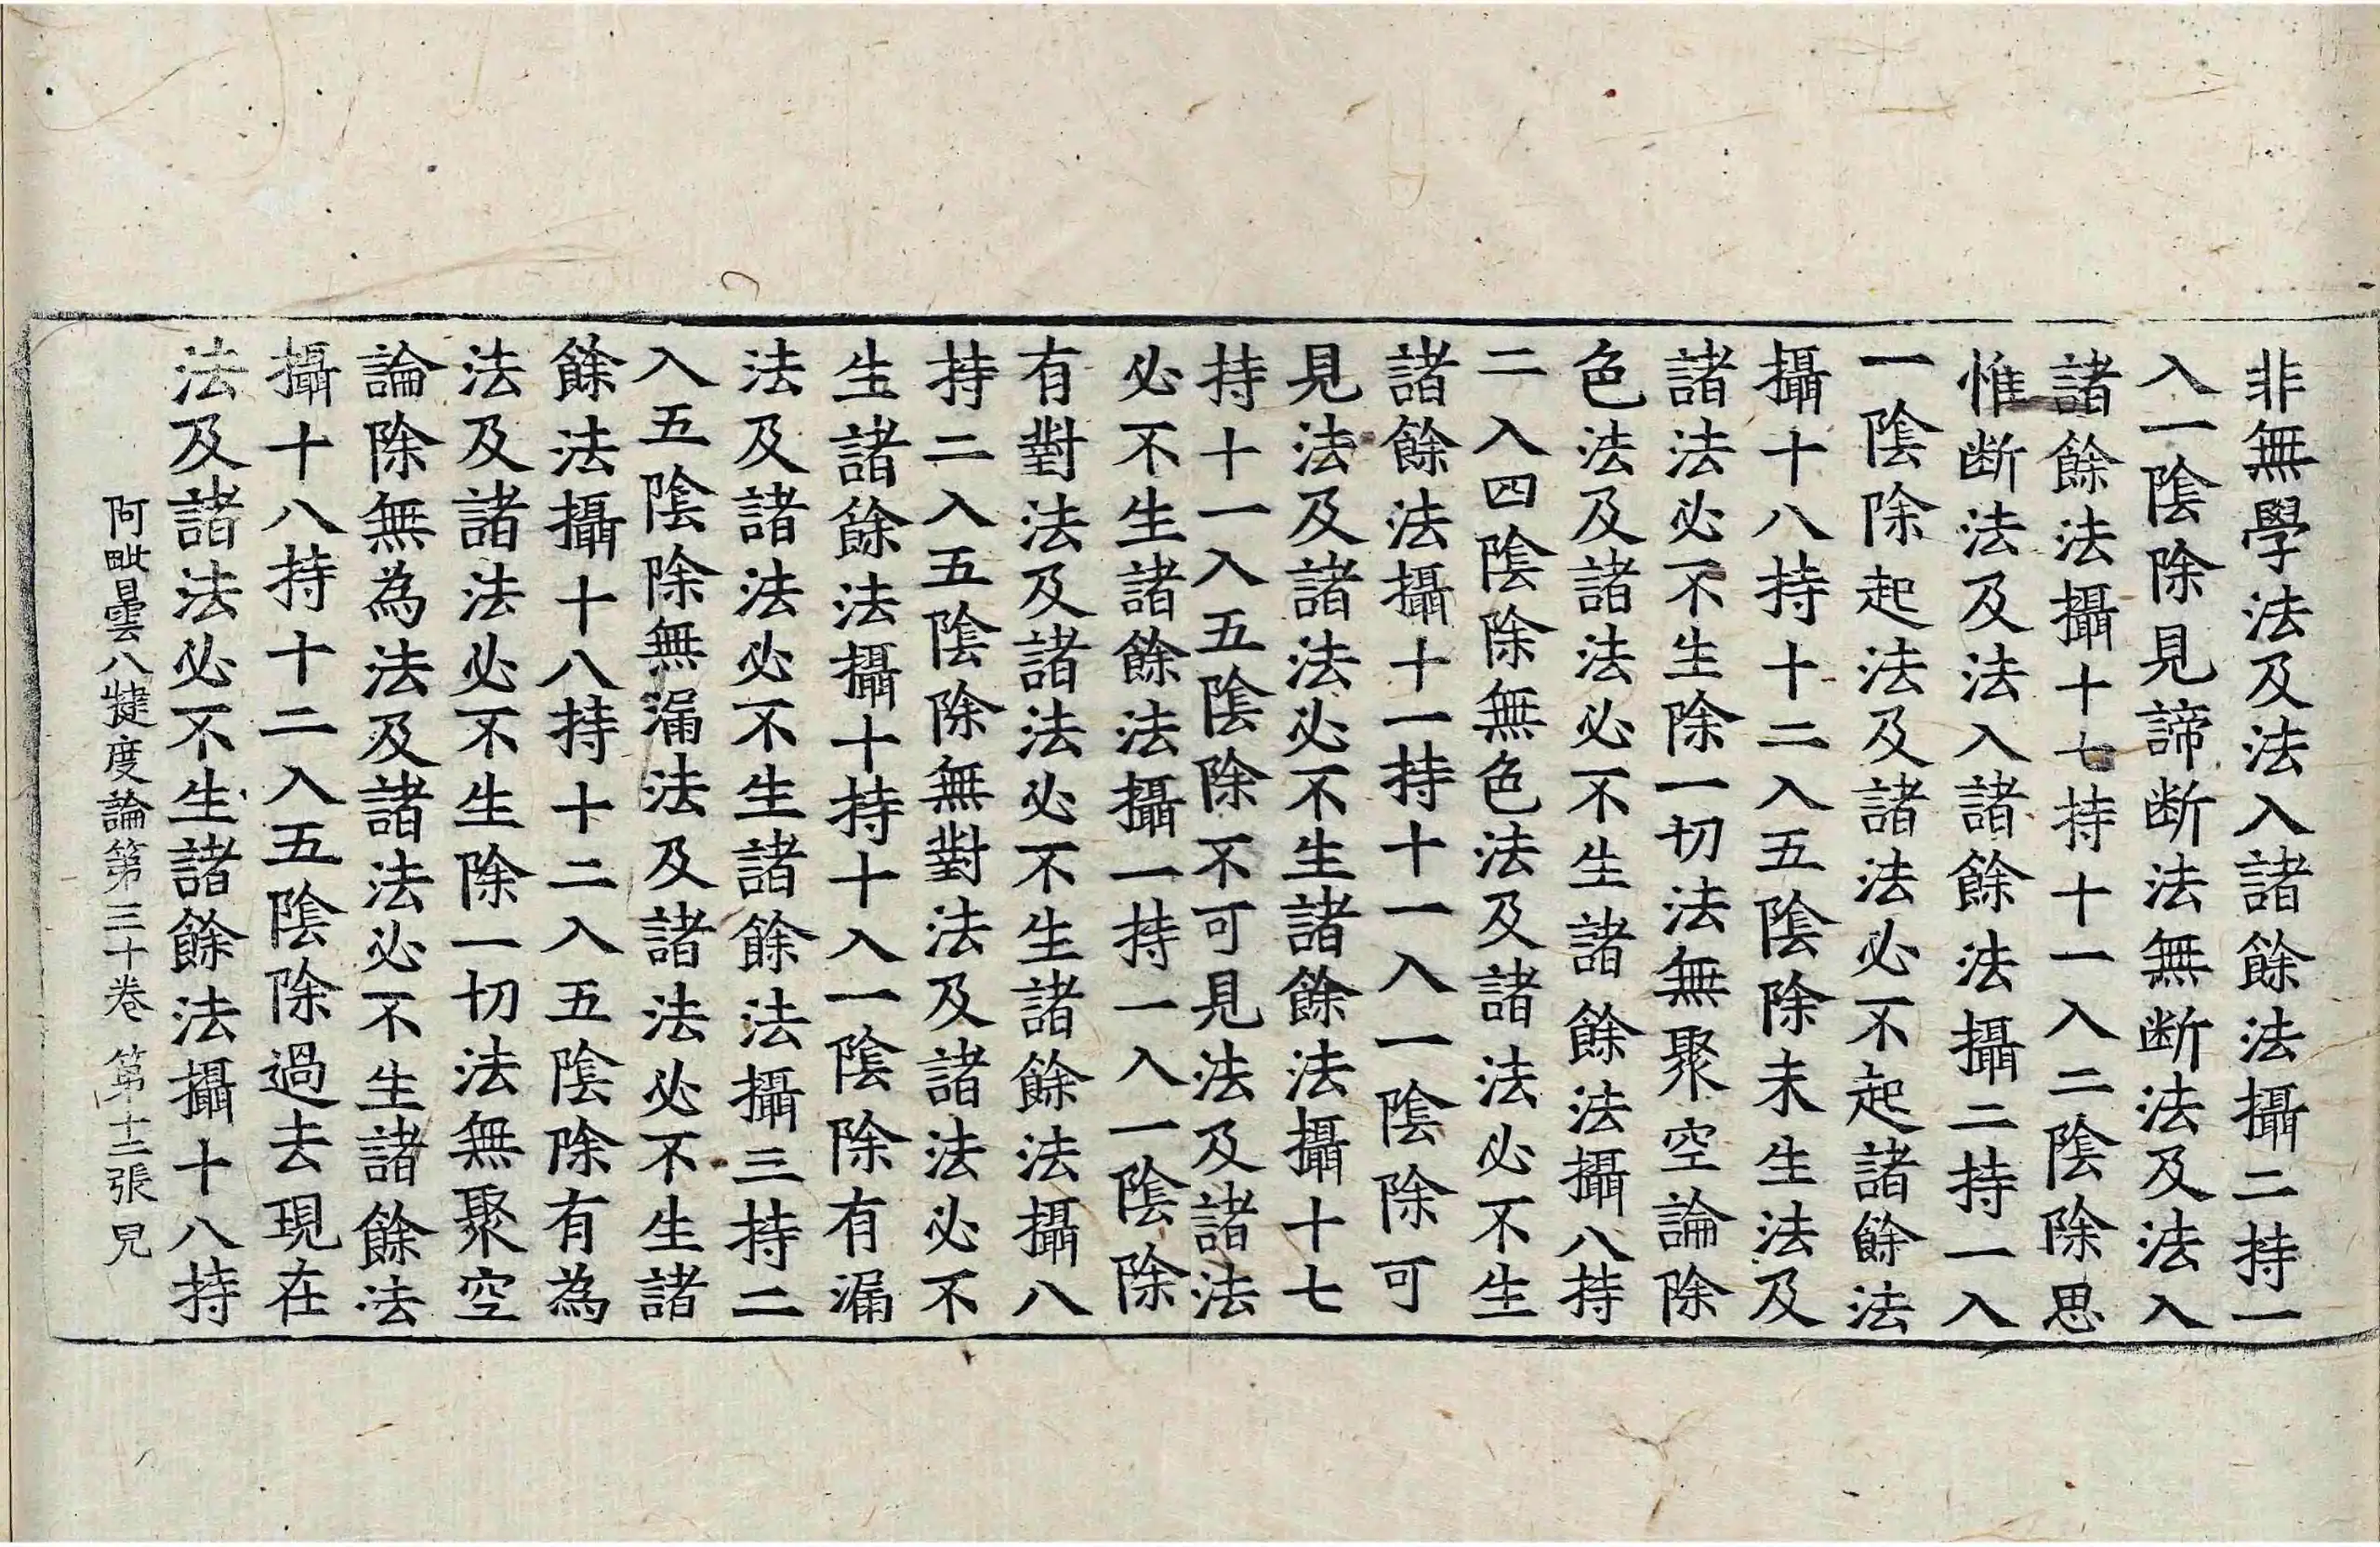 非無學法及法入諸餘法攝二持一
入一陰除見諦断法無断法及法入
諸餘法攝十七持十一入二陰除思
惟断法及法入諸餘法攝二持一入
一陰除起法及諸法必不起諸餘法
攝十八持十二入五陰除未生法及
諸法必不生除一切法無聚空論除
色法及諸法必不生諸餘法攝八持
二入四陰除無色法及諸法必不生
諸餘法攝十一持十一入一陰除可
見法及諸法必不生諸餘法攝十七
持十一入五陰除不可見法及諸法
必不生諸餘法攝一持一入一陰除
有對法及諸法必不生諸餘法攝八
持二入五陰除無對法及諸法必不
生諸餘法攝十持十入一陰除有漏
法及諸法必不生諸餘法攝三持二
入五陰除無漏法及諸法必不生諸
餘法攝十八持十二入五陰除有為
法及諸法必不生除一切法無聚空
論除無為法及諸法必不生諸餘法
攝十八持十二入五陰除過去現在
法及諸法必不生諸餘法攝十八持
阿毗曇八犍度論第三十卷 第十二張 見